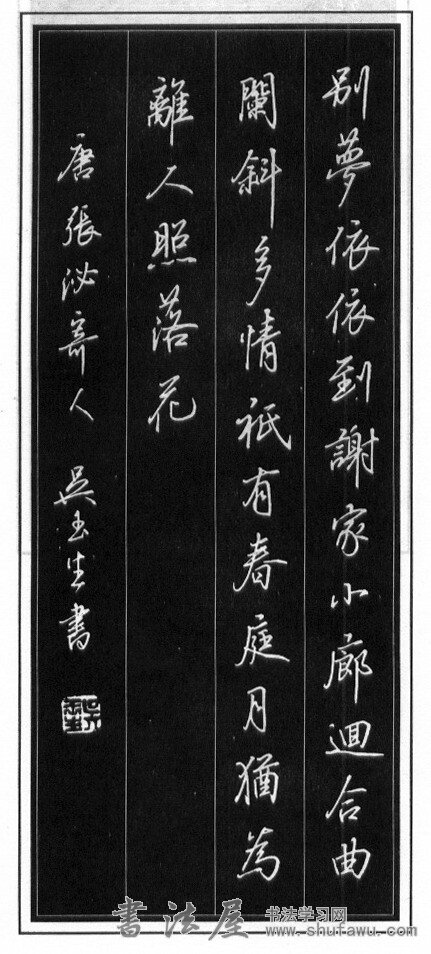 別夢依依到謝家小廊迴合曲
闌斜多情衹有春庭月猶為
離人照落花
唐張泌寄人 吳玉生書
書法屋 书法学习网
www.shufawu.com